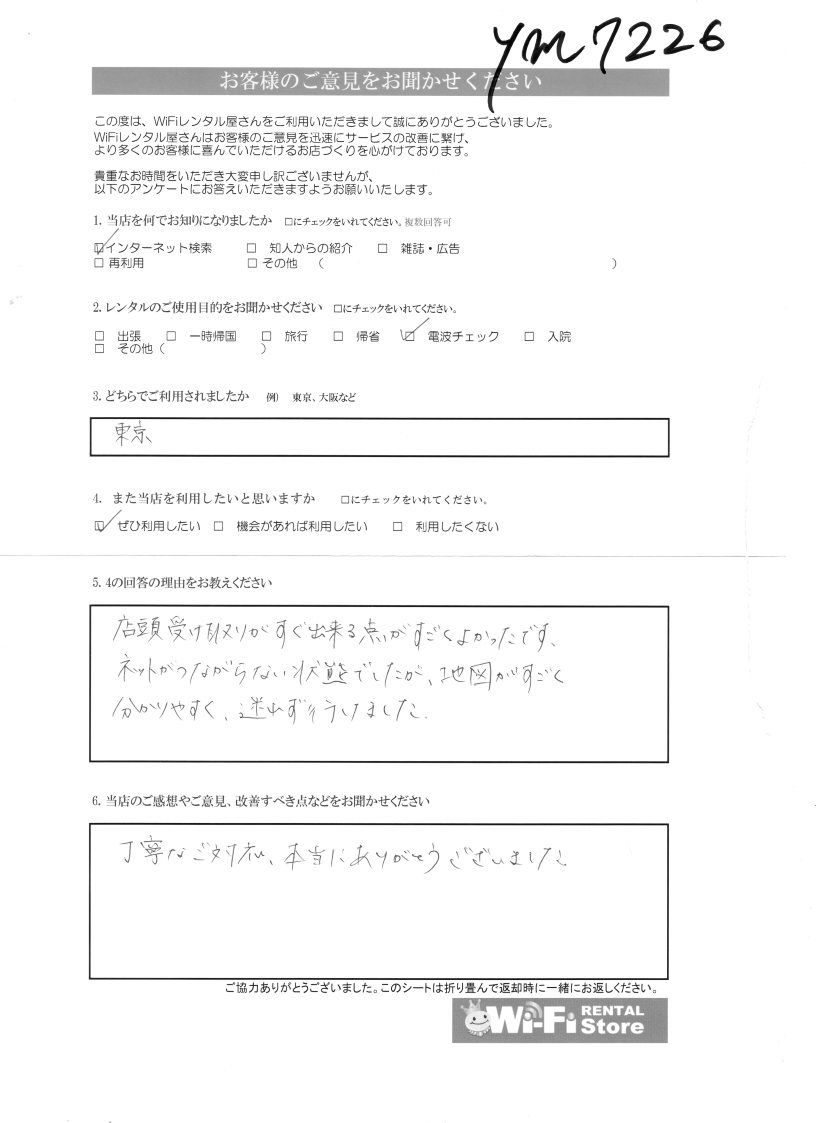 ym7226
お客様のご意見をお聞かせください
この度は、WiFiレンタル屋さんをご利用いただきまして誠にありがとうございました。
WiFiレンタル屋さんはお客様のご意見を迅速にサービスの改善に繋げ、
より多くのお客様に喜んでいただけるお店づくりを心がけております。
貴重なお時間をいただき大変申し訳ございませんが、
以下のアンケートにお答えいただきますようお願いいたします。
1. 当店を何でお知りになりましたか □にチェックをいれてください。複数回答可
☑インターネット検索 □ 知人からの紹介 □ 雑誌・広告
□ 再利用 □ その他 ( )
2. レンタルのご使用目的をお聞かせください □にチェックをいれてください。
□ 出張 □ 一時帰国 □ 旅行 □ 帰省 ☑ 電波チェック □ 入院
□ その他 ( )
3. どちらでご利用されましたか 例) 東京、大阪など
東京
4. また当店を利用したいと思いますか □にチェックをいれてください。
☑ ぜひ利用したい □ 機会があれば利用したい □ 利用したくない
5. 4の回答の理由をお教えください
店頭受け取りがすぐ出来る点がすごくよかったです、
ネットがつながらない状態でしたが、地図がすごく
分かりやすく、迷わず行けました.
6. 当店のご感想やご意見、改善すべき点などをお聞かせください
丁寧なご対応、本当にありがとうございました
ご協力ありがとうございました。このシートは折り畳んで返却時に一緒にお返しください。
Wi-Fi RENTAL Store